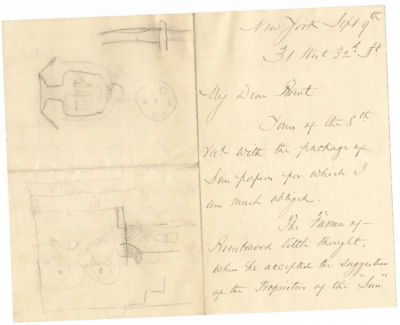 New York Sept 9th
31 West 32d St
My Dear Brent
Yours of the 8th
rec'd with the package of
Sun papers for which I
am much obliged.
The Farmer of
Brentwood little thought,
when he accepted the suggestion
of the Proprietors of the "Sun"